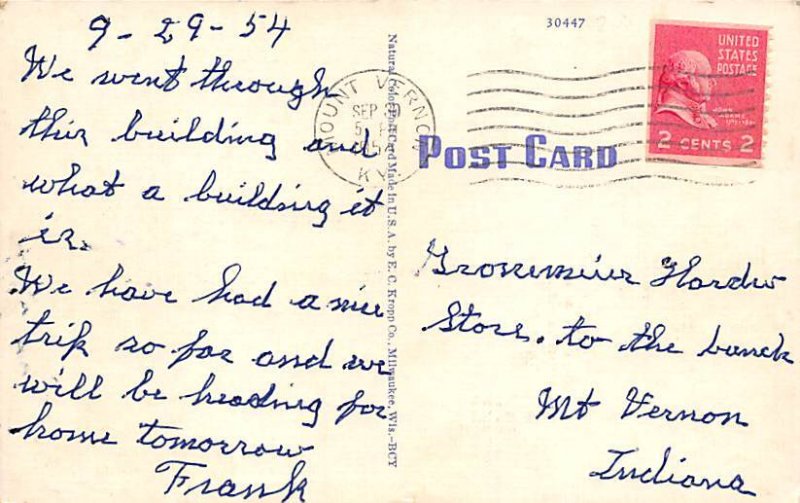 9-29-54
We went through
this building and
what a building it
is.
We have had a nice
trip so far and we
will be heading for
home tomorrow
Frank
Natural Color Post Card Made in U.S.A. by E. C. Kropp Co., Milwaukee, Wis.-BCY
30447
MOUNT VERNON
SEP
5
KY
POST CARD
UNITED
STATES
POSTAGE
JOHN
ADAMS
2 CENTS 2
Hardw
Store. to the bunck
Mt Vernon
Indiana